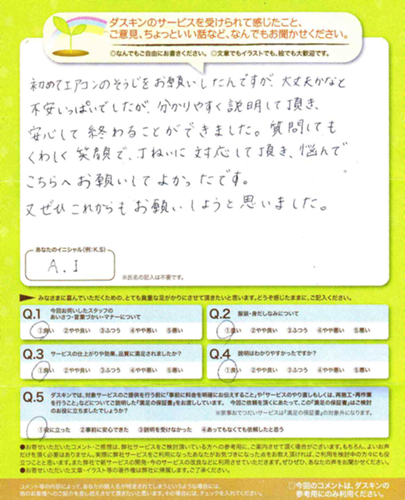 ダスキンのサービスを受けられて感じたこと、
ご意見、ちょっといい話など、なんでもお聞かせください。
◎なんでもご自由にお書きください。◎文章でもイラストでも、絵でも大歓迎です。
初めてエアコンのそうじをお願いしたんですが、大丈夫かなと
不安いっぱいでしたが、分かりやすく説明して頂き、
安心して終わることができました。質問しても
くわしく笑顔で、丁ねいに対応して頂き、悩んで
こちらへお願いしてよかったです。
又ぜひこれからもお願いしようと思いました。
あなたのイニシャル(例:K.S)
A.I
※氏名の記入は不要です。
みなさまに喜んでいただくための、とても貴重な足がかりにさせて頂きたいと思います。どうぞ感じたままに、ご記入ください。
Q.1 今回お伺いしたスタッフの
あいさつ・言葉づかい・マナーについて
①良い ②やや良い ③ふつう ④やや悪い ⑤悪い
Q.2 服装・身だしなみについて
①良い ②やや良い ③ふつう ④やや悪い ⑤悪い
Q.3 サービスの仕上がりや効果、品質に満足されましたか?
①良い ②やや良い ③ふつう ④やや悪い ⑤悪い
Q.4 説明はわかりやすかったですか?
①良い ②やや良い ③ふつう ④やや悪い ⑤悪い
Q.5 ダスキンでは、対象サービスのご提供を行う前に「事前に料金を明確にお伝えすること」や「サービスのやり直しもしくは、再施工・再作業
を行うこと」などについてご説明した「満足の保証書」をお渡ししています。 今回ご依頼を頂くにあたって、この「満足の保証書」はご検討
のお役に立ちましたでしょうか?
※家事おてつだいサービスは「満足の保証書」の対象外になります。
①役に立った ②事前に安心できた ③説明を受けなかった ④あってもなくても依頼したと思う
●お寄せいただいたコメント・ご感想は、弊社サービスをご検討頂いている方への参考用に、ご案内させて頂く場合がございます。もちろん、よいお声
だけを頂く必要はありません。実際に弊社サービスをご利用になったあなたがお気づきになった点をお教え頂ければ、ご利用を検討中の方々にも役
立つことと思います。また弊社で新サービスの開発・今のサービスの改善などにも利用させていただきます。ぜひぜひ、あなたの声をお聞かせください。
●お寄せいただいた文章・イラスト等の著作権は、弊社に帰属します。ご了承ください。
◯今回のコメントは、ダスキンの
参考用にのみ利用ください。